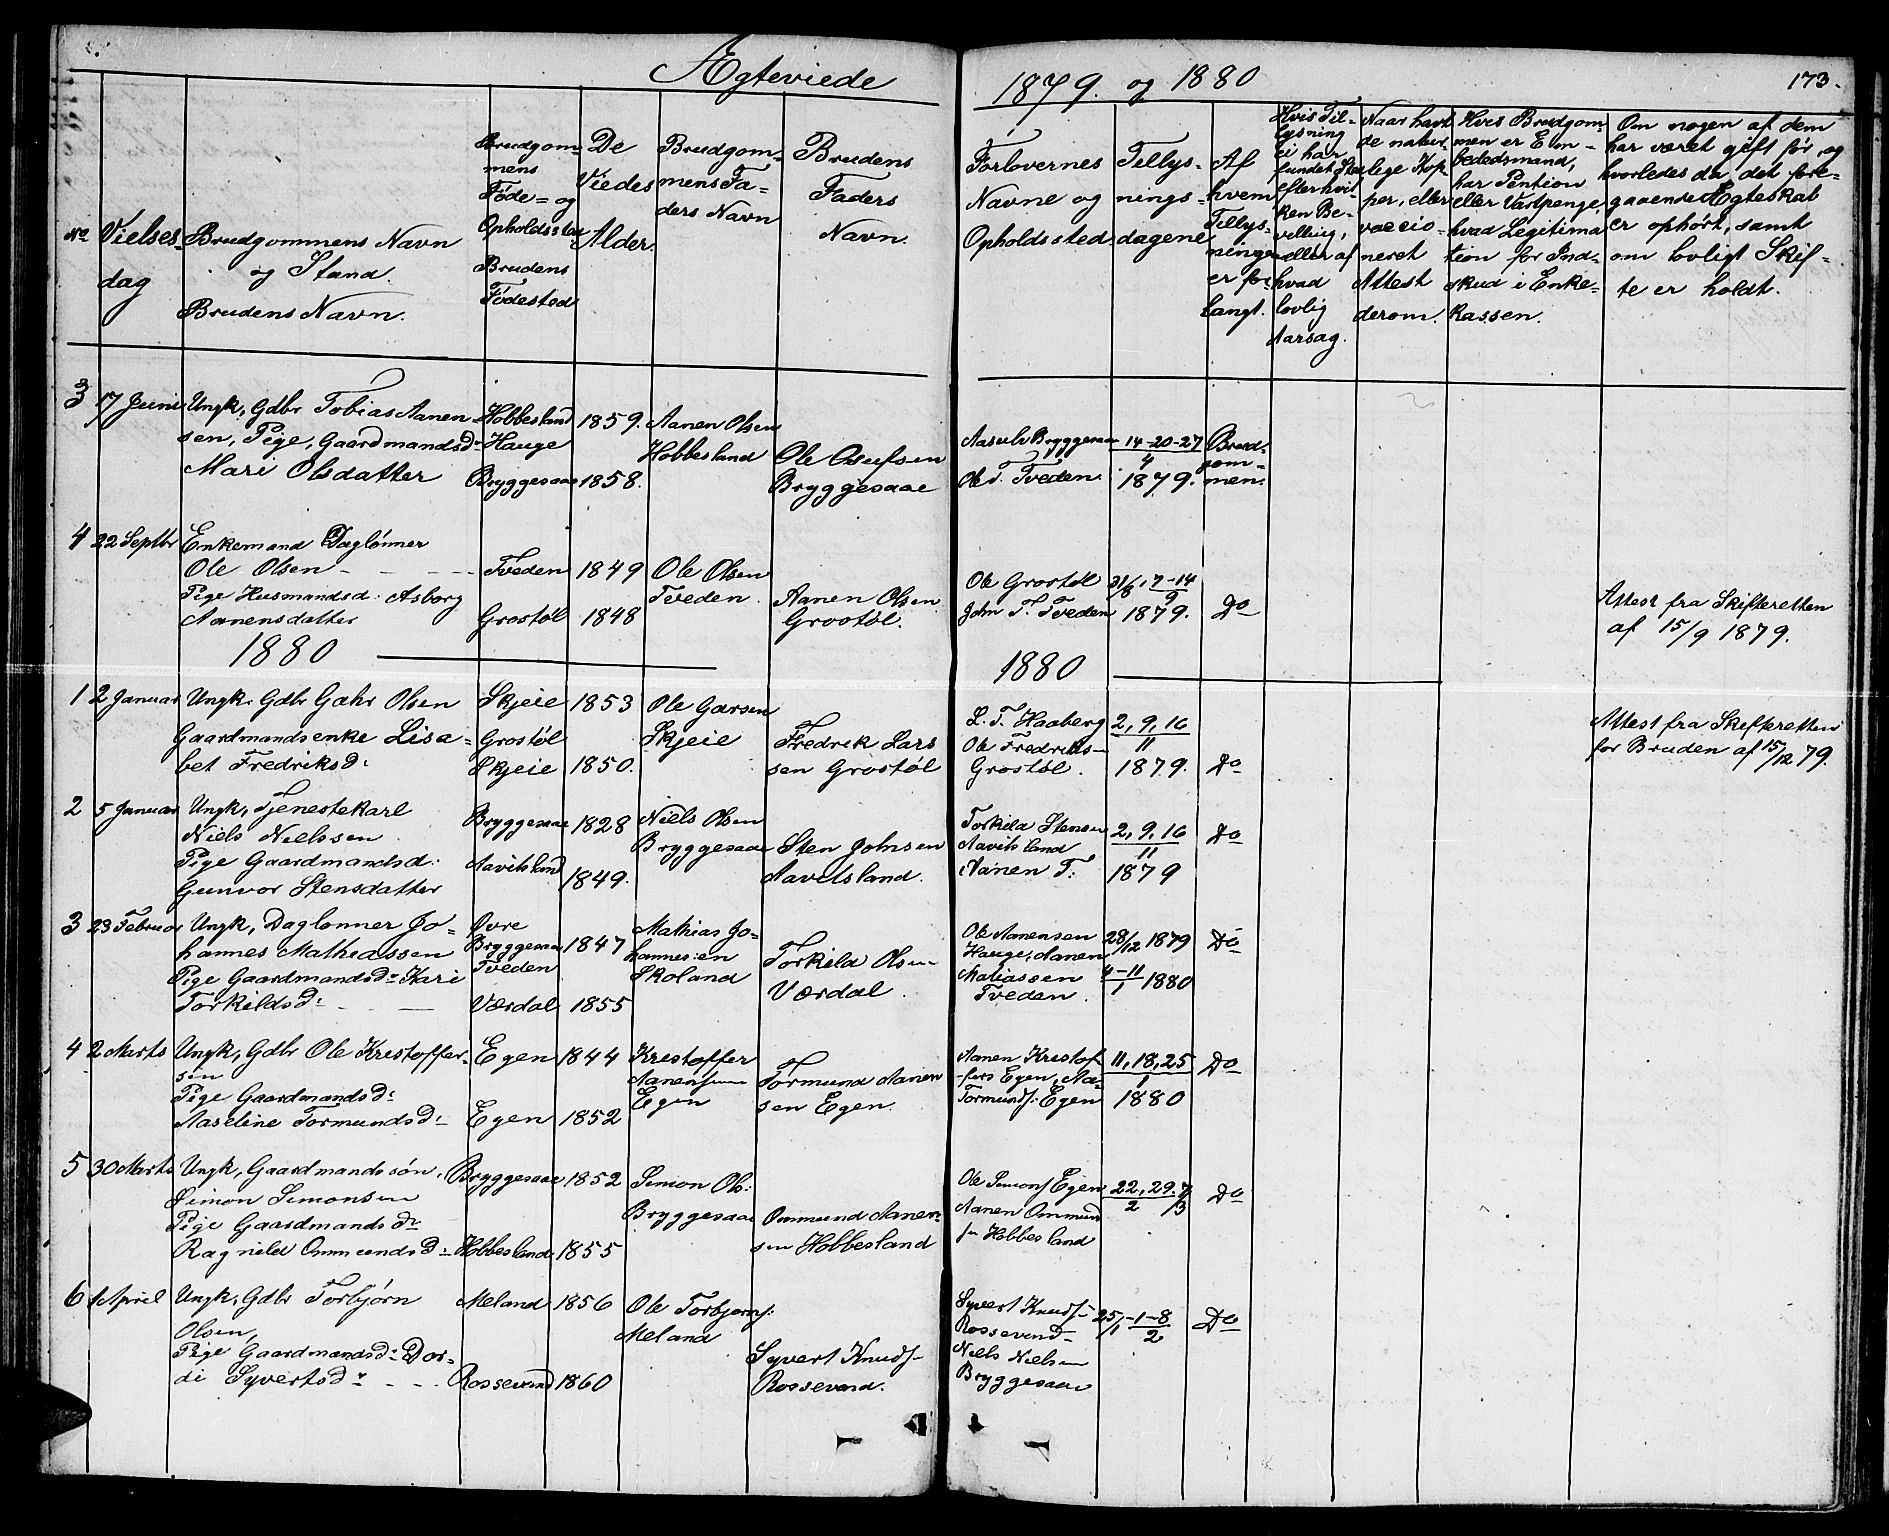 Ægteviede
1879. og 1880
173.
No
Vielses-
dag
Brudgommens Navn
og Stand.
Brudens Navn.
Brudgom-
mens
Føde- og
Opholdssted
Brudens
Fødested
De
Viedes
Alder.
Brudgom-
mens Fa-
ders Navn
Brudens
Faders
Navn.
Forlovernes
Navne og
Opholdssted
Tillys-
nings-
dagene
Af
hvem
Tillys-
ningen
er for-
langt.
Hvis Til-
lysning
ei har
fundet Sted
efter hvil-
ken Be-
villing,
eller af
hvad
lovlig
Aarsag.
Naar havt
de natur-
lige Kop-
per, eller
vaccio-
neret
Attest
derom.
Hvis Brudgom-
men er Em-
bededsmand,
har Pention
eller Vartpenge,
hvad Legitima
tion for Ind-
skud i Enke-
Kassen.
Om nogen af dem
har været gift før, og
hvorledes da det fore-
gaaende Ægteskab
er ophørt, samt
om lovligt Skif-
te er holdt.
3 17 Juni Ungk, Gdbr Tobias Aanen-
sen, Pige, Gaardmandsd:
Mari Olsdatter
Hobbesland
Hauge
Bryggesaae
1859.
1858.
Aanen Olsen
Hobbesland
Ole Osufsen
Bryggesaae
Aasulv Bryggesaae
Ole T. Tveden.
14-20-27
4
1879.
Brud-
gom-
men.
4 22 Septbr Enkemand Daglønner
Ole Olsen
Pige Husmandsd. Asborg
Aanensdatter
Tveden
Grostøl
1849
1848
Ole Olsen
Tveden.
Aanen Olsen
Grostøl.
Ole Grostøl
John T. Tveden
31/8, 7-14
9
1879.
Do
Attest fra Skifteretten
af 15/9 1879.
1880
1880
1 2 Januar Ungk. Gdbr Gahr Olsen
Gaardmandsenke Lisa-
bet Fredriksd:
Skjeie
Grostøl
Skjeie
1853
1850.
Ole Garsen
Skjeie
Fredrek Lars
sen Grostøl
L. T. Haaberg
Ole Fredriks-
Grostøl.
2, 9, 16
11
1879.
Do
Attest fra Skifteretten
for Bruden af 15/12 79.
2 5 Januar Ungk, Tjenestekarl
Niels Nielssen
Pige Gaardmandsd:
Gunvor Stensdatter
Bryggesaae
Aavitsland
1828
1849.
Niels Olsen
Bryggesaae
Sten Johnsen
Aavitsland.
Torkild Stensen
Aavitsland
Aanen T.
2, 9, 16
11
1879
Do
3 23 Februar Ungk, Daglønner Jo-
hannes Mathiassen
Pige Gaardmandsd: Kari
Torkildsd:
Øvre
Bryggesaae
Tveden
Værdal
1847
1855
Mathias Jo-
hannesen
Skoland
Torkild Olsen
Værdal.
Ole Aanensen
Hauge, Aanen
Matiassen
Tveden.
28/12 1879
4-11
1 1880
Do
4 2 Marts Ungk, Gdbr Ole Krestoffer-
sen
Pige Gaardmandsd:
Aaseline Tormundsd:
Egen
Egen
1844
1852
Krestoffer
Aanensen
Egen
Tormund Aanen
sen Egen.
Aanen Kristof-
fers Egen, Aa-
Tormunds. Egen
11, 18, 25
1
1880
Do
5 30 Marts Ungk, Gaardmandssøn,
Simon Simonsen
Pige Gaardmandsd:
Ragnild Ommundsd:
Bryggesaae
Hobbesland
1852
1855
Simon Ols:
Bryggesaae
Ommund Aanen-
sen Hobbesland
Ole Simons Egen
Aanen Ommund
sen Hobbesland
22, 29. 7
2 /3
Do
6 1 April Ungk, Gdbr Torbjørn
Olsen,
Pige Gaardmandsd: Dor-
di Syvertsd:
Meland
Rossevand
1856
1860
Ole Torbjørns:
Meland
Syvert Knuds-
Rossevand.
Syvert Knuds-
Rossevand-
Niels Nielsen
Bryggesaae
25/1 -1-8
2
Do